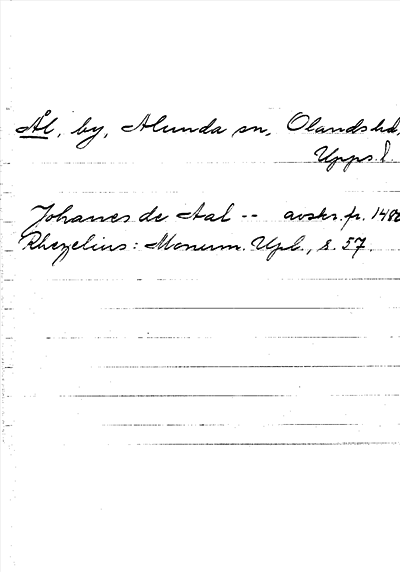 Ål, by, Alunda sn, Olands hd,
Upps. l.
Johannes de Aal -- avskr. fr. 1480
Rhezelius: Monum. Upl., s. 57.